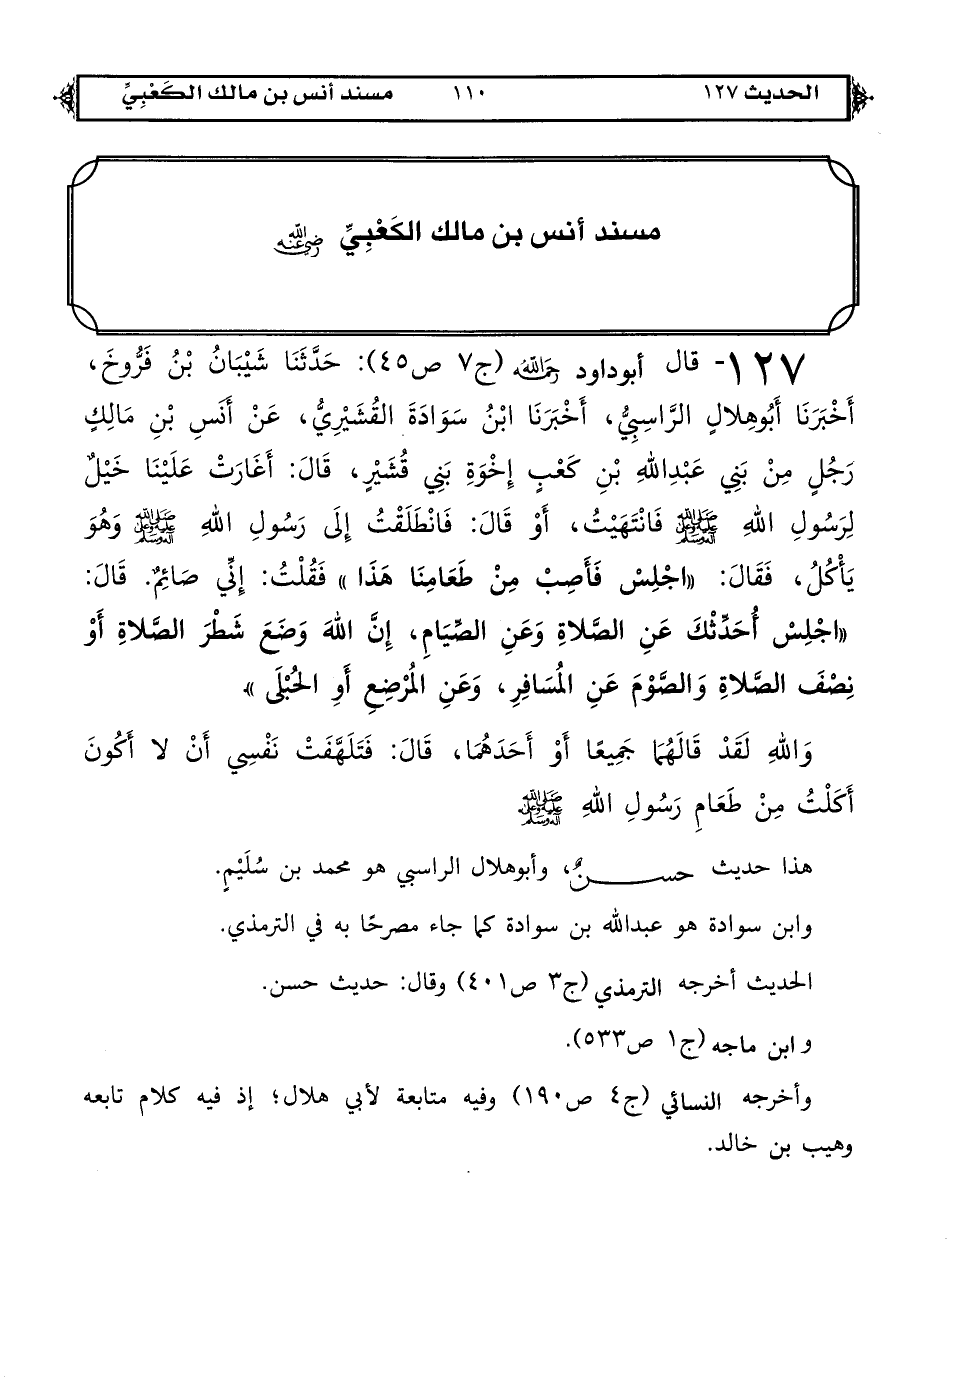 الحديث ١٢٧ ١١٠ مسند أنس بن مالك الكَعْبِيِّ
مسند أنس بن مالك الكَعْبِيِّ رضي الله عنه
١٢٧- قال أبوداود رحمه الله (ج٧ ص٤٥): حَدَّثَنَا شَيْبَانُ بْنُ فَرُّوخَ،
أَخْبَرَنَا أَبُوهِلالٍ الرَّاسِبِيُّ، أَخْبَرَنَا ابْنُ سَوَادَةَ القُشَيْرِيُّ، عَنْ أَنَسِ بْنِ مَالِكٍ
رَجُلٍ مِنْ بَنِي عَبْدِاللهِ بْنِ كَعْبٍ إِخْوَةِ بَنِي قُشَيْرٍ، قَالَ: أَغَارَتْ عَلَيْنَا خَيْلٌ
لِرَسُولِ اللهِ ﷺ فَانْتَهَيْتُ، أَوْ قَالَ: فَانْطَلَقْتُ إِلَى رَسُولِ اللهِ ﷺ وَهُوَ
يَأْكُلُ، فَقَالَ: «اجْلِسْ فَأَصِبْ مِنْ طَعَامِنَا هَذَا» فَقُلْتُ: إِنِّي صَائِمٌ. قَالَ:
«اجْلِسْ أُحَدِّثْكَ عَنِ الصَّلاةِ وَعَنِ الصِّيَامِ، إِنَّ اللهَ وَضَعَ شَطْرَ الصَّلاةِ أَوْ
نِصْفَ الصَّلاةِ وَالصَّوْمَ عَنِ المُسَافِرِ، وَعَنِ المُرْضِعِ أَوِ الحُبْلَى».
وَاللهِ لَقَدْ قَالَهُمَا جَمِيعًا أَوْ أَحَدَهُمَا، قَالَ: فَتَلَهَّفَتْ نَفْسِي أَنْ لا أَكُونَ
أَكَلْتُ مِنْ طَعَامِ رَسُولِ اللهِ ﷺ
هذا حديث حسنٌ، وأبوهلال الراسبي هو محمد بن سُلَيْمٍ.
وابن سوادة هو عبدالله بن سوادة كما جاء مصرحًا به في الترمذي.
الحديث أخرجه الترمذي (ج٣ ص٤٠١) وقال: حديث حسن.
و ابن ماجه (ج١ ص٥٣٣).
وأخرجه النسائي (ج٤ ص١٩٠) وفيه متابعة لأبي هلال؛ إذ فيه كلام تابعه
وهيب بن خالد.